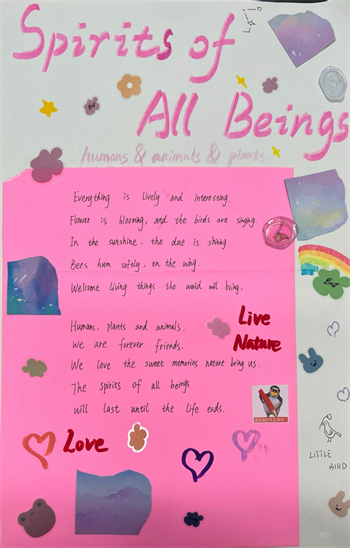 Spirits of
All Beings
humans & animals & plants
Everything is lively and interesting.
Flower is blooming, and the birds are singing.
In the sunshine, the due is shining
Bees hum softly, on the wing.
Welcome living things the world will bring.
Humans, plants and animals.
We are forever friends.
We love the sweet memories nature bring us.
The spirits of all beings
will last until the life ends.
Live
Nature
Love
LITTLE
BIRD